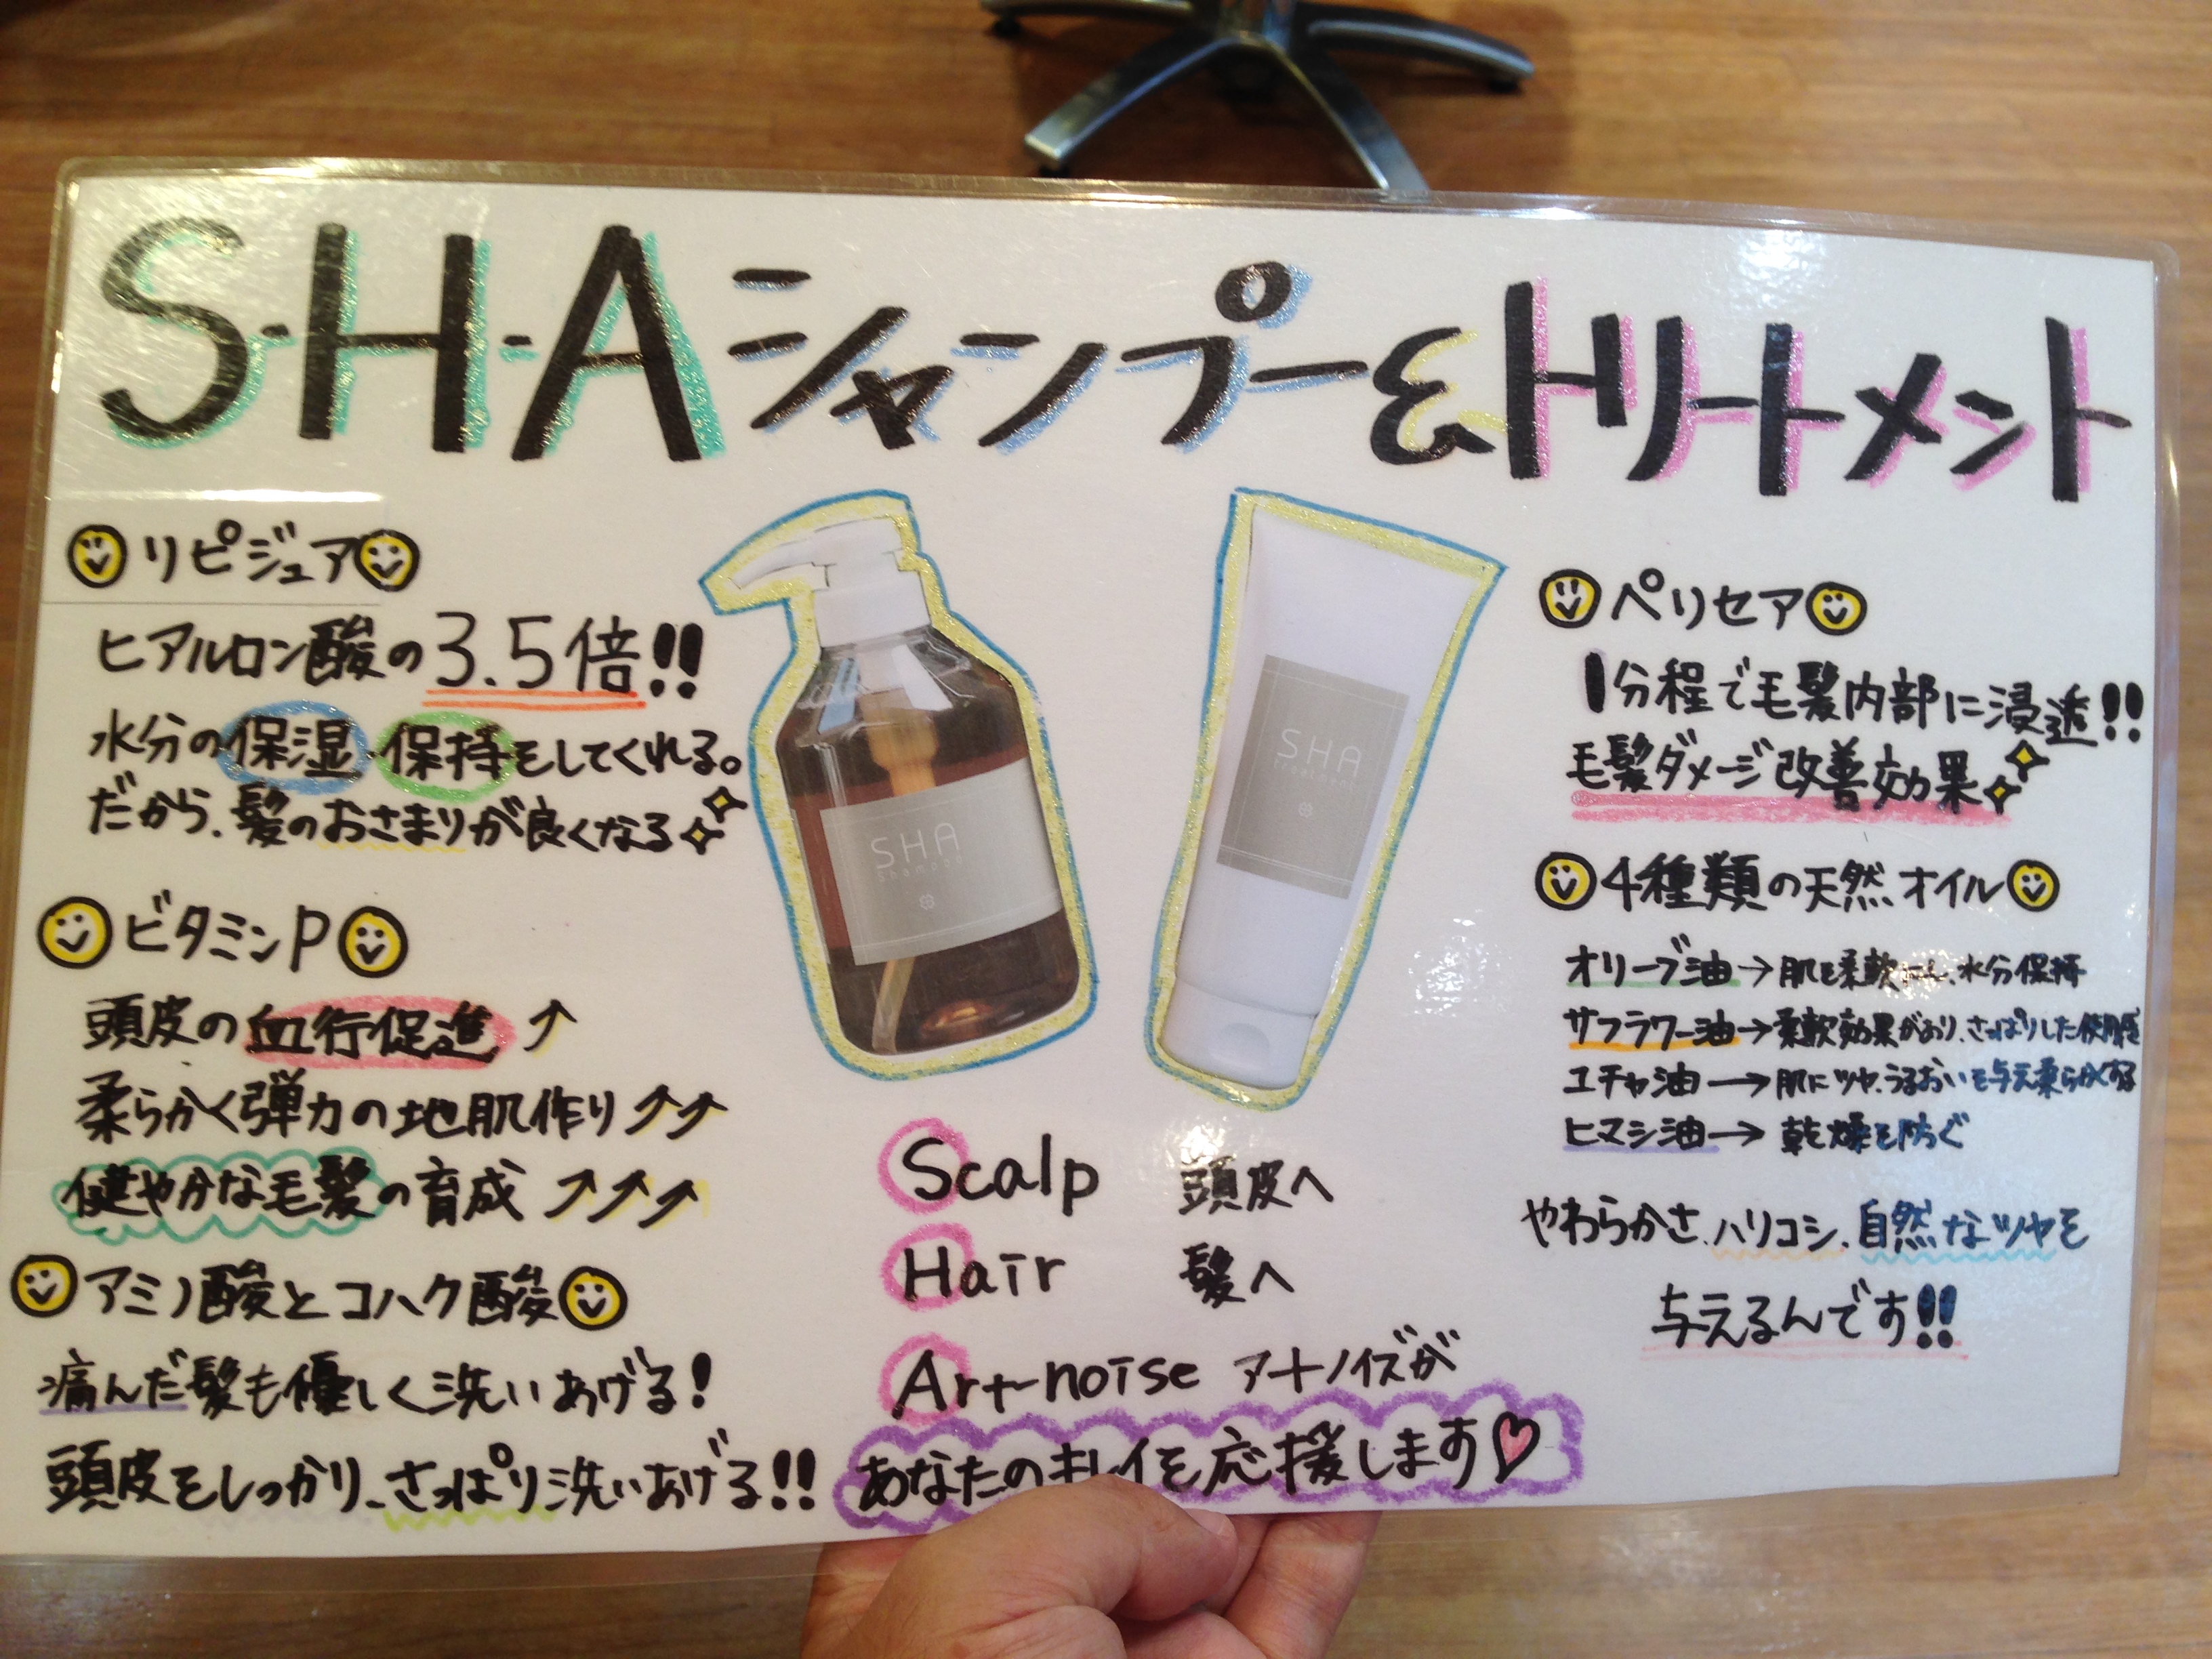 S-H-Aシャンプー&トリートメント
リピジュア
ヒアルロン酸の3.5倍!!
水分の保湿・保持をしてくれる。
だから、髪のおさまりが良くなる
ビタミンP
頭皮の血行促進↑
柔らかく弾力の地肌作り↑↑
健やかな毛髪の育成↑↑↑
アミノ酸とコハク酸
痛んだ髪も優しく洗いあげる!
頭皮をしっかり、さっぱり洗いあげる!!
SHA
shampoo
SHA
treatment
Scalp 頭皮へ
Hair 髪へ
Art-noise アートノイズが
あなたのキレイを応援します♡
ペリセア
1分程で毛髪内部に浸透!!
毛髪ダメージ改善効果
4種類の天然オイル
オリーブ油→肌を柔軟にし、水分保持
サフラワー油→柔軟効果があり、さっぱりした使用感
ユチャ油→肌にツヤ、うるおいを与え柔らかくする
ヒマシ油→乾燥を防ぐ
やわらかさ、ハリコシ、自然なツヤを
与えるんです!!